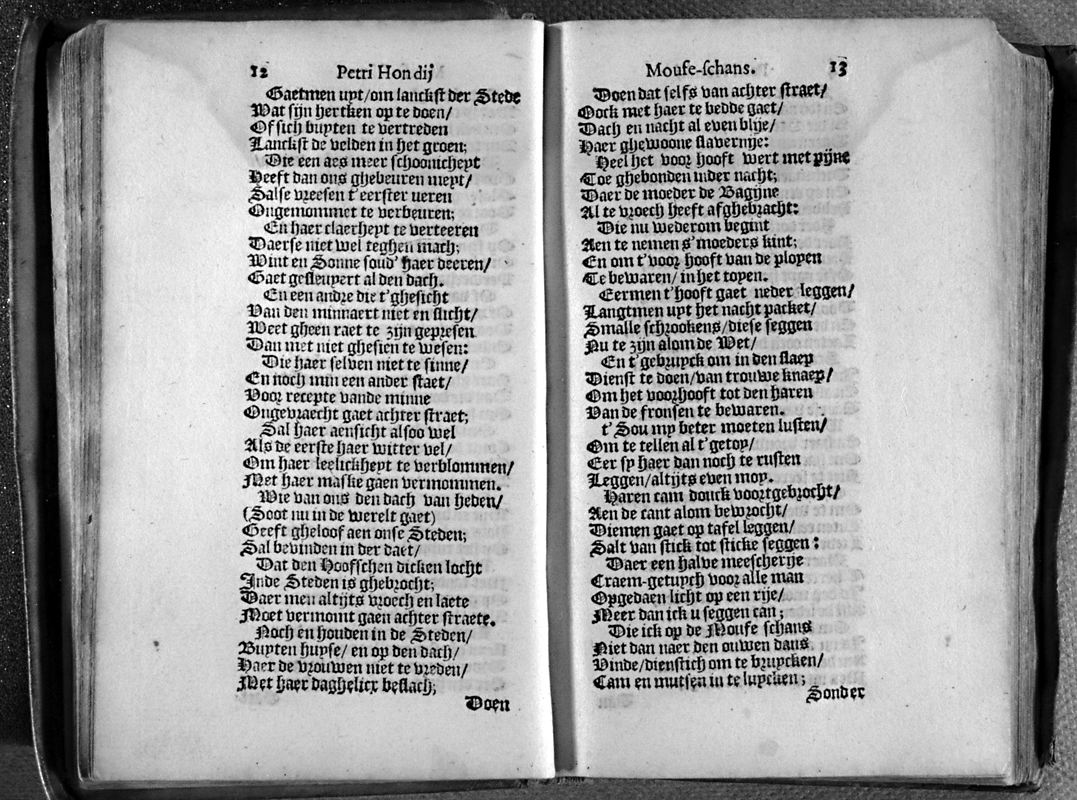 12 Petri Hondij
Gaetmen uyt/om lanckst der Stede
Wat sijn hertken op te doen/
Of sich buyten te vertreden
Lanckst de velden in het groen;
Die een aes meer schoonicheyt
Heeft dan ons ghebeuren meyt/
Salse vreesen t'eerster ueren
Ongemommet te verbeuren;
En haer claerheyt te verteeren
Daerse niet wel teghen mach;
Wint en Sonne soud' haer deeren/
Gaet gesleuyert al den dach.
En een andre die t'ghesicht
Van den minnaert niet en sticht/
Weet gheen raet te zijn gepresen
Dan met niet ghesien te wesen:
Die haer selven niet te sinne/
En noch min een ander staet/
Voor recepte vande minne
Ongevraecht gaet achter straet;
Sal haer aensicht alsoo wel
Als de eerste haer witter vel/
Om haer leelickheyt te verblommen/
Met haer maske gaen vermommen.
Wie van ons den dach van heden/
(Soot nu in de werelt gaet)
Geeft gheloof aen onse Steden;
Sal bevinden in der daet/
Dat den Hoofschen dicken locht
Inde Steden is ghebrocht;
Daer men altijts vroech en laete
Moet vermomt gaen achter straete.
Noch en houden in de Steden/
Buyten huyse/ en op den dach/
Haer de vrouwen niet te vreden/
Met haer daghelicx beslach;
Doen
Mouse-schans. 13
Doen dat selfs van achter straet/
Oock met haer te bedde gaet/
Dach en nacht al even blije/
Haer ghewoone slavernije:
Heel het voor hooft wert met pijne
Toe ghebonden inder nacht;
Daer de moeder de Bagijne
Al te vroech heeft afghebracht:
Die nu wederom begint
Aen te nemen s'moeders kint;
En om t'voor hooft van de ployen
Te bewaren/ in het toyen.
Eermen t'hooft gaet neder leggen/
Langtmen uyt het nacht packet/
Smalle schrookens/diese seggen
Nu te zijn alom de Wet/
En t'gebruyck om in den slaep
Dienst te doen/van trouwe knaep/
Om het voorhooft tot den haren
Van de fronsen te bewaren.
t'Sou my beter moeten lusten/
Om te tellen al t'getoy/
Eer sy haer dan noch te rusten
Leggen/altijts even moy.
Haren cam douck voortgebrocht/
Aen de cant alom bewrocht/
Diemen gaet op tafel leggen/
Salt van stick tot sticke seggen:
Daer een halve meescherije
Craem-getuych voor alle man
Opgedaen licht op een rije/
Meer dan ick u seggen can;
Die ick op de Mouse schans
Niet dan naer den ouwen dans
Vinde/dienstich om te bruycken/
Cam en mutsen in te luycken;
Sonder